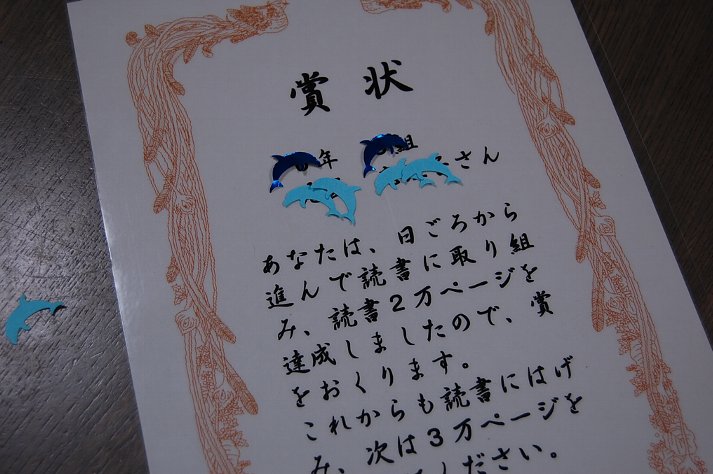 賞状
年 組
さん
あなたは、日ごろから
進んで読書に取り組
み、読書2万ページを
達成しましたので、賞
をおくります。
これからも読書にはげ
み、次は3万ページを
ください。